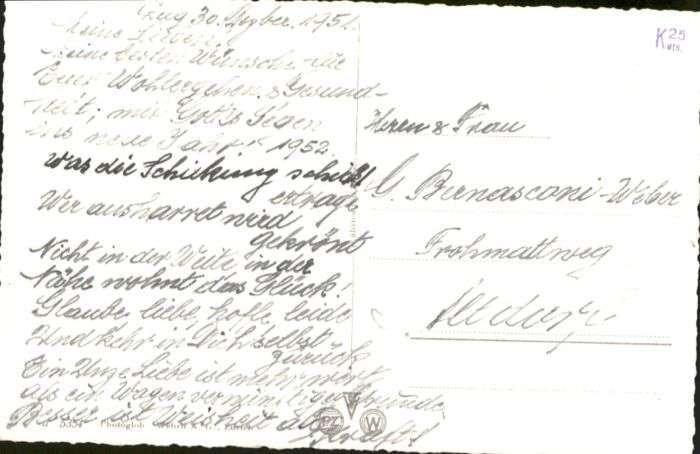 Zug 30. Dezber. 1951.
Meine Lieben,
Meine besten Wünsche für
Euer Wohlergehen & Gesund-
heit; mit Gottes Segen
ins neue Jahr! 1952.
Was die Schickung schickt
ertrage
Wer ausharret wird
gekrönt
Nicht in der Weite, in der
Nähe wohnt das Glück!
Glaube, liebe, hoffe, leide
Und kehr in Dich selbst
zurück
Ein Unze Liebe ist mehr wert
als ein Wagen voll
Besser ist Weisheit als
Kraft!
5354 Photoglob
PZ W
K 25
cts.
Herrn & Frau
G. Bernasconi-Weber
Frohmattweg
Altdorf